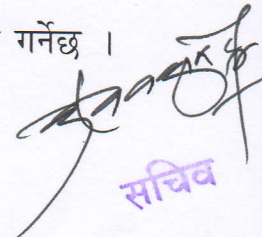 गर्नेछ ।
सचिव